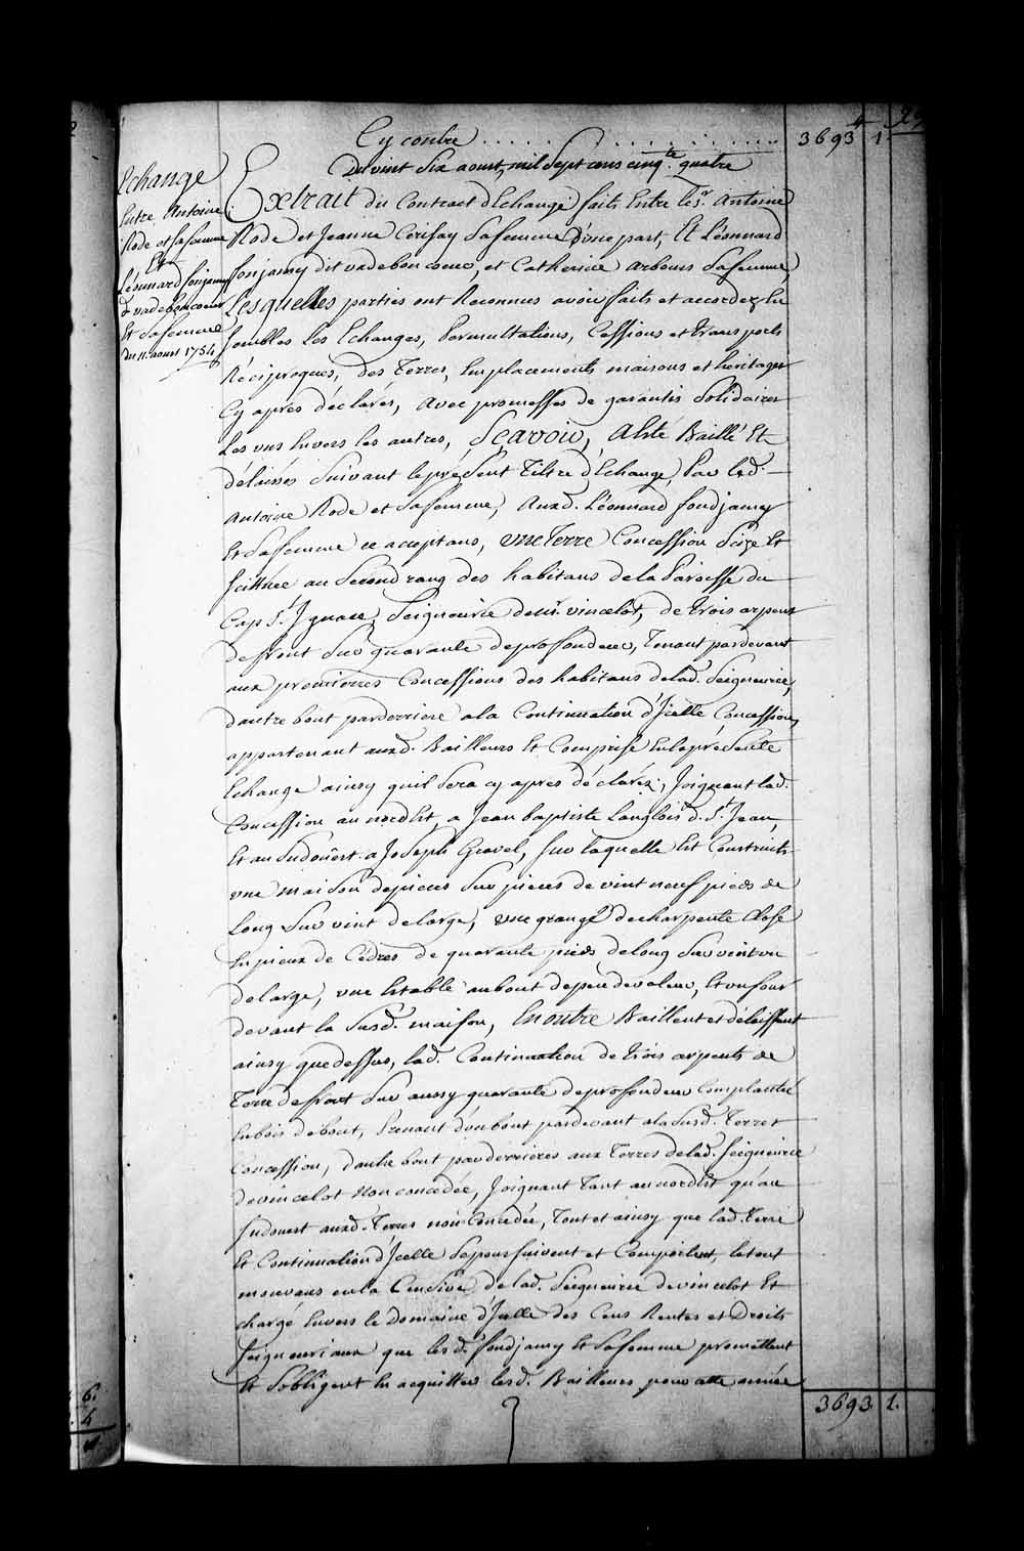 Cy contre . . . . . . . . . . 3693 4 1.
Du vint Six aoust, mil Sept cens cinq.te quatre
Echange
Entre Antoine
Rode et sa femme
Et
Léonnard fonjamy
d. vadeboncoeur
Et Sa femme
du 11. aoust 1754
Extrait du Contract d'Echange faits Entre le S.r Antoine
Rode et Jeanne Cerisay Sa femme d'une part, Et Léonnard
fonjamy dit vadeboncoeur, et Catherine arbour Sa femme,
Lesquelles parties ont Reconnus avoir faits et accordez En
semblés Les Echanges, Permultations, Cessions et transports
Réciproques, des Terres, Emplacements maisons et heritages
Cy apres déclarés, avec promesses de garantis Solidaires
Les uns Envers les autres, Sçavoir, A Esté Baillé Et
délaissés Suivant le présent Tiltre d'Echange, Par led.
Antoine Rode et Sa femme, Aux d. Léonnard fondjamy
Et Sa femme ce acceptans, une Terre Concession Seize Et
scittuée au Second rang des habitans de la Paroisse du
Cap S.t Ignace, Seigneurie de m.r vincelot, de trois arpens
de front Sur quarante de profondeur, Tenant pardevant
aux premierres Concessions des habitans de lad. Seigneurie,
dautre bout parderriere a la Continuation d'Icelle Concession,
appartenant aux d. Bailleurs Et Comprise En le présente
Echange ainsy quil Sera cy apres déclarés, Joignant lad.
Concession au nordEst, a Jean baptiste Langlois d. S.t Jean,
Et au Sudoüest a Joseph Gravel, sur laquelle Est Construits
une maison de pieces Sur pieces de vint neuf pieds de
Long Sur vint de large, une grange de charpente close
En pieux de Cédres de quarante pieds de long Sur vint un
de large, une Etable au bout de peu de valeur, Et un four
devant la Susd. maison, En outre Baillent et délaissent
ainsy que dessus, lad. Continuation de trois arpents de
Terre de front Sur aussy quarante de profondeur Complantée
En bois debout, Prenant d'un bout pardevant a la Susd. Terre et
Concession, d'autre bout parderrieres aux Terres de lad. Seigneurie
de vincelot Non concedée, Joignant Tant au nordEst qu'au
Sudouest aux d. Terres non Concedée, Tout et ainsy que lad. Terre
Et Continuation d'Icelle Se poursuivent et Comportent, le tout
mouvans en la Censive de lad. Seigneurie de vincelot Et
chargé Envers le Domaine d'Icelle des Cens Rentes et Droits
Seigneuriaux que les d. fondjamy Et Sa femme promettent
Et S'obligent En acquitter lesd. Bailleurs pour cette année
3693 1.
6.
4